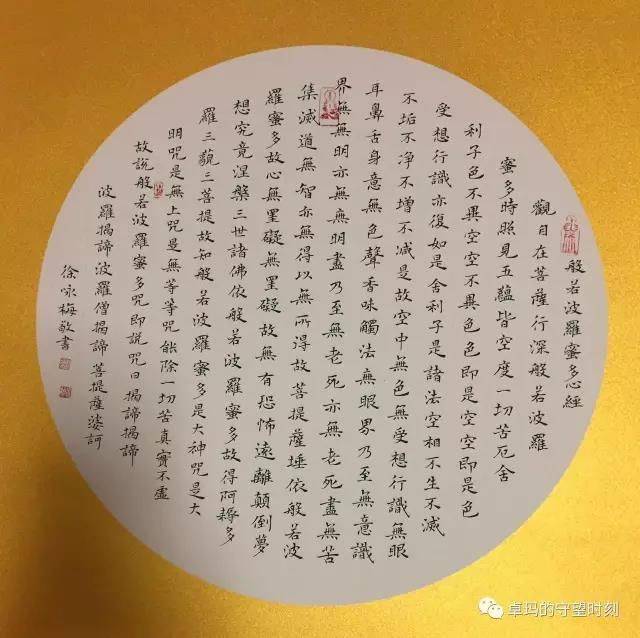 般若波羅蜜多心經
觀自在菩薩行深般若波羅
蜜多時照見五蘊皆空度一切苦厄舍
利子色不異空空不異色色即是空空即是色
受想行識亦復如是舍利子是諸法空相不生不滅
不垢不净不增不减是故空中無色無受想行識無眼
耳鼻舌身意無色聲香味觸法無眼界乃至無意識
界無無明亦無無明盡乃至無老死亦無老死盡無苦
集滅道無智亦無得以無所得故菩提薩埵依般若波
羅蜜多故心無罣礙無罣礙故無有恐怖遠離顛倒夢
想究竟涅槃三世諸佛依般若波羅蜜多故得阿耨多
羅三藐三菩提故知般若波羅蜜多是大神咒是大
明咒是無上咒是無等等咒能除一切苦真實不虛
故說般若波羅蜜多咒即說咒曰揭諦揭諦
波羅揭諦波羅僧揭諦菩提薩婆訶
徐咏梅敬書
卓玛的守望时刻